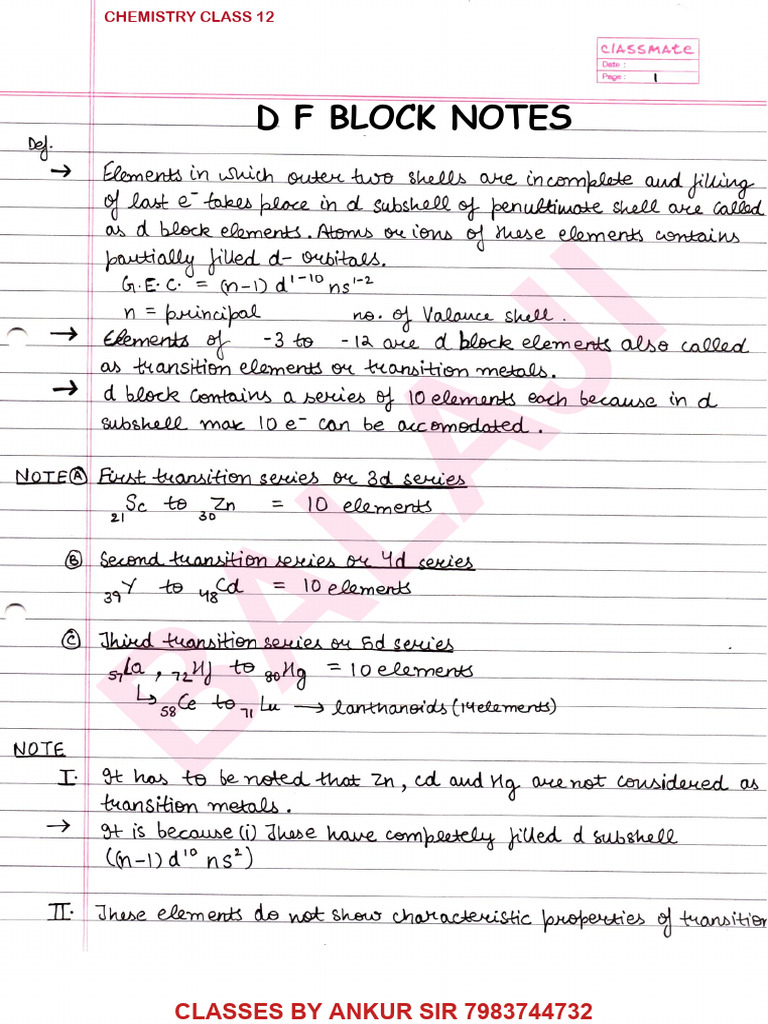 CHEMISTRY CLASS 12
classmate
Date :
Page : 1
D F BLOCK NOTES
Def.
→ Elements in which outer two shells are incomplete and filling
of last e⁻ takes place in d subshell of penultimate shell are called
as d block elements. Atoms or ions of these elements contains
partially filled d- orbitals.
G.E.C. = (n-1) d¹⁻¹⁰ ns¹⁻²
n = principal no. of Valance shell.
→ Elements of -3 to -12 are d block elements also called
as transition elements or transition metals.
→ d block contains a series of 10 elements each because in d
subshell max 10 e⁻ can be accomodated.
NOTE Ⓐ First transition series or 3d series
₂₁Sc to ₃₀Zn = 10 elements
Ⓑ Second transition series or 4d series
₃₉Y to ₄₈Cd = 10 elements
Ⓒ Third transition series or 5d series
₅₇La , ₇₂Hf to ₈₀Hg = 10 elements
↳ ₅₈Ce to ₇₁Lu → lanthanoids (14 elements)
NOTE
I. It has to be noted that Zn, Cd and Hg are not considered as
transition metals.
→ It is because (i) These have completely filled d subshell
((n-1) d¹⁰ ns²)
II. These elements do not show characteristic properties of transition
BALAJI
CLASSES BY ANKUR SIR 7983744732